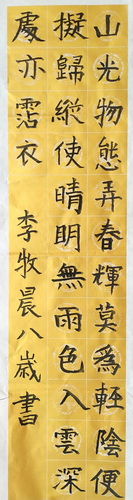 山光物態弄春輝莫為輕陰便
擬歸縱使晴明無雨色入雲深
處亦霑衣 李牧晨八歲書